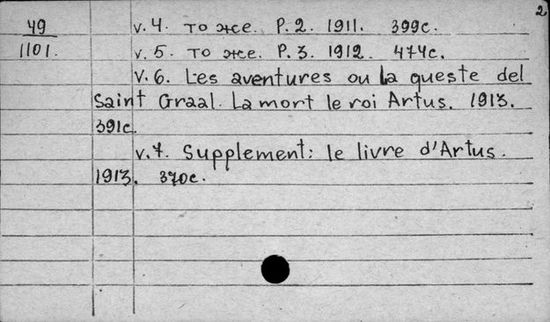 2
49 v.4. то же. P.2. 1911. 399c.
1101. v.5. то же. P.3. 1912. 474c.
v.6. Les aventures ou la queste del
Saint Graal. La mort le roi Artus. 1913.
391c.
v.7. Supplement: le livre d'Artus.
1913. 370c.